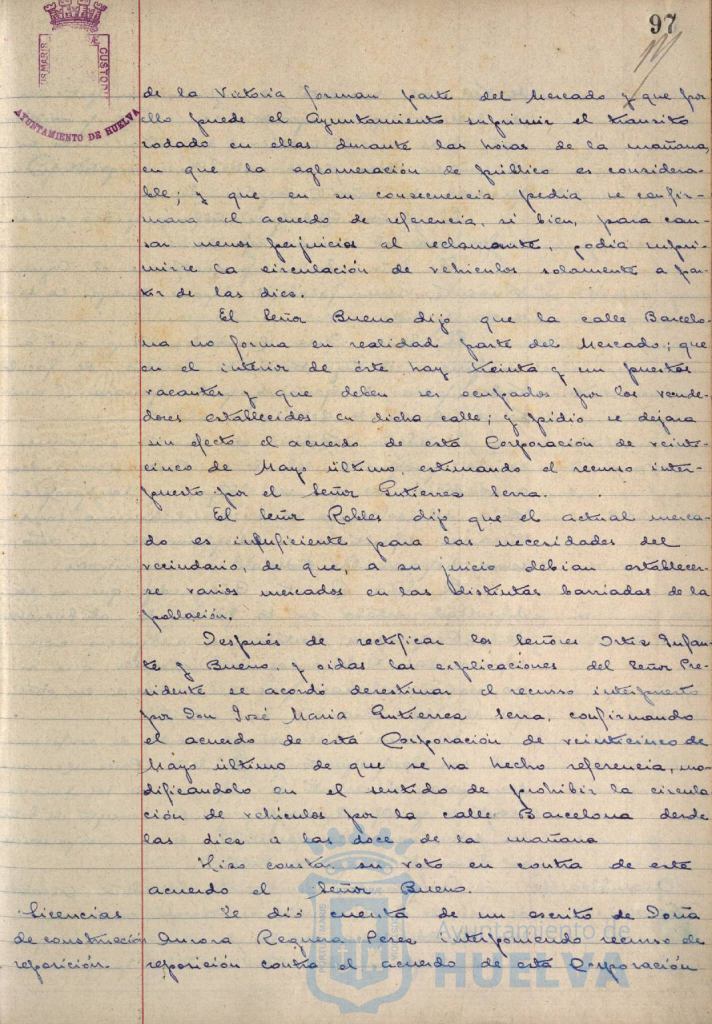 97
AYUNTAMIENTO DE HUELVA
de la Victoria forman parte del Mercado y que por
ello puede el Ayuntamiento suprimir el tránsito
rodado en ellas durante las horas de la mañana,
en que la aglomeración de público es considera-
ble; y que en su consecuencia pedia se confir-
mara el acuerdo de referencia, si bien, para cau-
sar menos perjuicios al reclamante, podia supri-
mirse la circulación de vehiculos solamente a par-
tir de las diez.
El Señor Bueno dijo que la calle Barcelo-
na no forma en realidad parte del Mercado; que
en el interior de éste hay treinta y un puestos
vacantes y que deben ser ocupados por los vende-
dores establecidos en dicha calle; y pidió se dejara
sin efecto el acuerdo de esta Corporación de veinti-
cinco de Mayo último, estimando el recurso inter-
puesto por el Señor Gutierrez Serra.
El Señor Robles dijo que el actual merca-
do es insuficiente para las necesidades del
vecindario, de que, a su juicio debian establecer-
se varios mercados en las distintas barriadas de la
población.
Después de rectificar los Señores Ortiz Infan-
te y Bueno, y oidas las explicaciones del Señor Pre-
sidente se acordó desestimar el recurso interpuesto
por Don José Maria Gutierrez Serra, confirmando
el acuerdo de esta Corporación de veinticinco de
Mayo último de que se ha hecho referencia, mo-
dificandolo en el sentido de prohibir la circula-
ción de vehículos por la calle Barcelona desde
las diez a las doce de la mañana
Hizo constar su voto en contra de este
acuerdo el Señor Bueno.
Licencias
de construcción
reposición.
Se dió cuenta de un escrito de Doña
Aurora Requena Perez interponiendo recurso de
reposición contra el acuerdo de esta Corporación
Ayuntamiento de
HUELVA